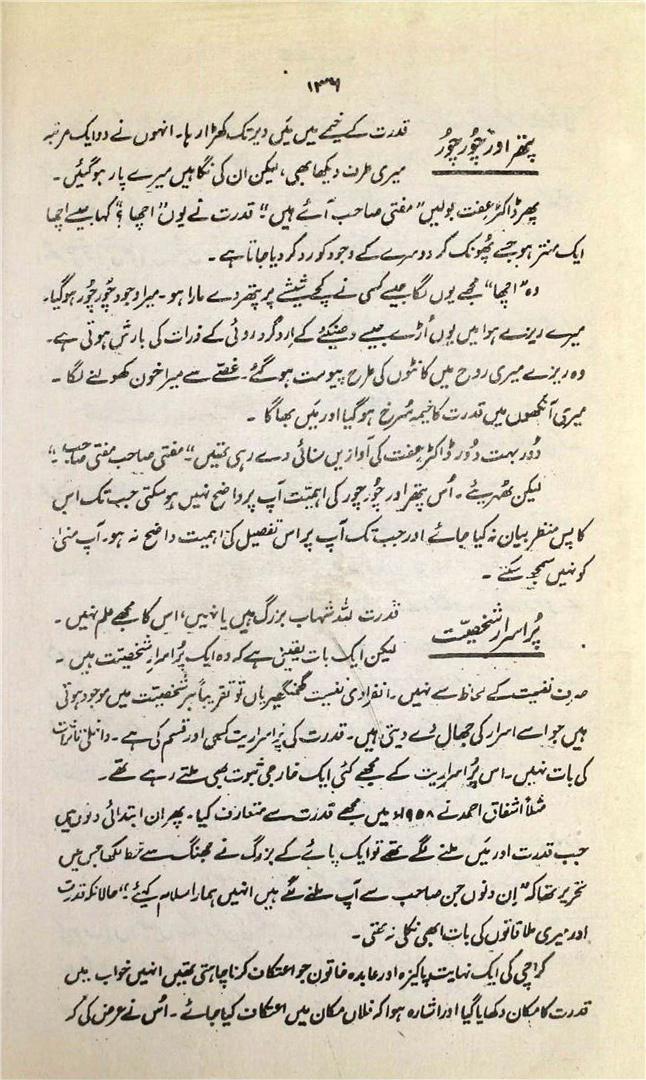 ۱۳۶
پتھر اور چُور چُور
قدرت کے خیمے میں مَیں دیر تک کھڑا رہا۔ انہوں نے دو ایک مرتبہ
میری طرف دیکھا بھی، لیکن ان کی نگاہیں میرے پار ہو گئیں۔
پھر ڈاکٹر عفت بولیں "مفتی صاحب آئے ہیں"۔ قدرت نے یوں "اچھا؟" کہا جیسے اچھا
ایک منتر ہو جسے پھونک کر دوسرے کے وجود کو رد کر دیا جاتا ہے۔
وہ "اچھا" مجھے یوں لگا جیسے کسی نے کچے شیشے پر پتھر دے مارا ہو۔ میرا وجود چُور چُور ہو گیا۔
میرے ریزے ہوا میں یوں اُڑے جیسے دھنیئے کے اردگرد روئی کے ذرات کی بارش ہوتی ہے۔
وہ ریزے میری روح میں کانٹوں کی طرح پیوست ہو گئے۔ غصے سے میرا خون کھولنے لگا۔
میری آنکھوں میں قدرت کا خیمہ سُرخ ہو گیا اور مَیں بھاگا۔
دُور بہت دُور ڈاکٹر عفت کی آوازیں سنائی دے رہی تھیں "مفتی صاحب مفتی صاحب"۔
لیکن ٹھہریئے۔ اُس پتھر اور چُور چُور کی اہمیّت آپ پر واضح نہیں ہو سکتی جب تک اس
کا پس منظر بیان نہ کیا جائے اور جب تک آپ پر اس تفصیل کی اہمیت واضح نہ ہو۔ آپ منیٰ
کو نہیں سمجھ سکتے۔
پُراسرار شخصیّت
قدرت اللہ شہاب بزرگ ہیں یا نہیں، اس کا مجھے علم نہیں۔
لیکن ایک بات یقینی ہے کہ وہ ایک پُراسرار شخصیّت ہیں۔
صرف نفسیت کے لحاظ سے نہیں۔ انفرادی نفسیت گھمن گھیریاں تو تقریباً ہر شخصیّت میں موجود ہوتی
ہیں جو اسے اسرار کی جھال دے دیتی ہیں۔ قدرت کی پُراسراریت کسی اور قسم کی ہے۔ داخلی تاثرات
کی بات نہیں۔ اس پُراسراریت کے مجھے کئی ایک خارجی ثبوت بھی ملتے رہے تھے۔
مثلاً اشفاق احمد نے ۱۹۵۸ء میں مجھے قدرت سے متعارف کیا۔ پھر ان ابتدائی دنوں میں
جب قدرت اور مَیں ملنے لگے تھے تو ایک پائے کے بزرگ نے جھنگ سے خط لکھا جس میں
تحریر تھا کہ "اِن دنوں جن صاحب سے آپ ملنے لگے ہیں انہیں ہمارا سلام کہیئے"۔ حالانکہ قدرت
اور میری ملاقاتوں کی بات ابھی نکلی نہ تھی۔
کراچی کی ایک نہایت پاکیزہ اور عابدہ خاتون جو اعتکاف کرنا چاہتی تھیں انہیں خواب میں
قدرت کا مکان دکھایا گیا اور اشارہ ہوا کہ فلاں مکان میں اعتکاف کیا جائے۔ اُس نے عرض کی کہ